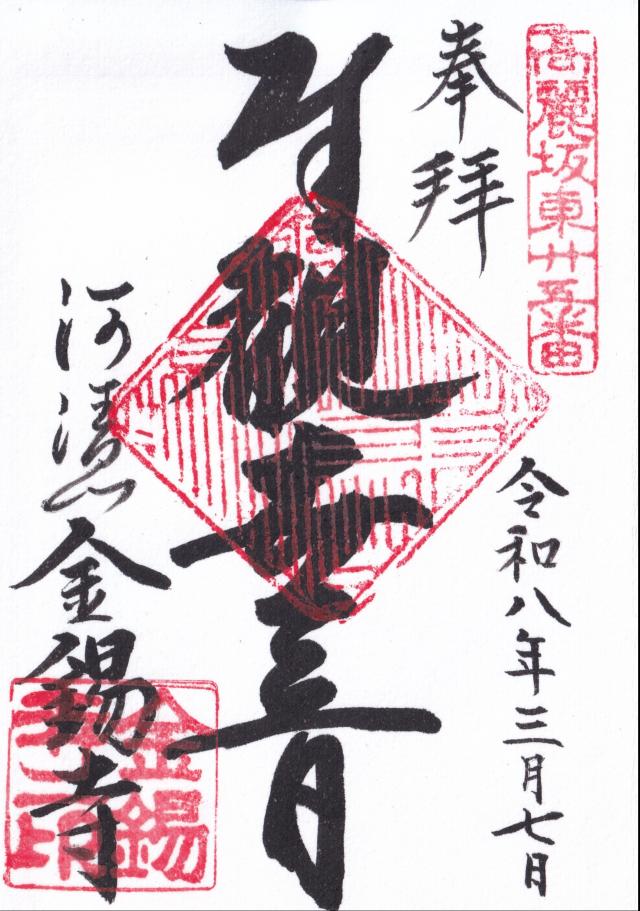 高麗坂東廿五番
奉拝
令和八年三月七日
観世音
河清山
金錫寺
金錫